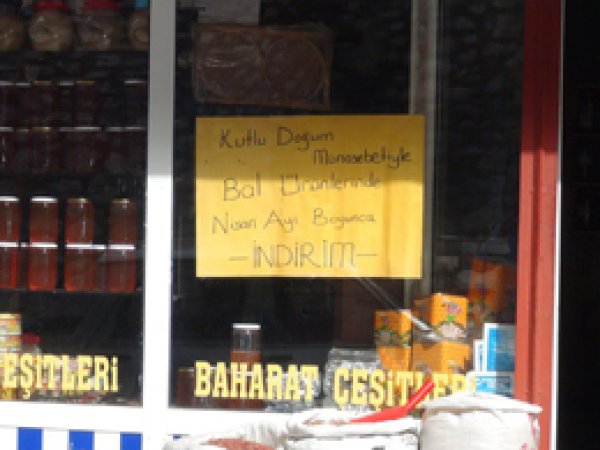 Kutlu Doğum
Münasebetiyle
Bal Ürünlerinde
Nisan Ayı Boyunca
- İNDİRİM -
EŞİTLERİ
BAHARAT ÇEŞİTLERİ